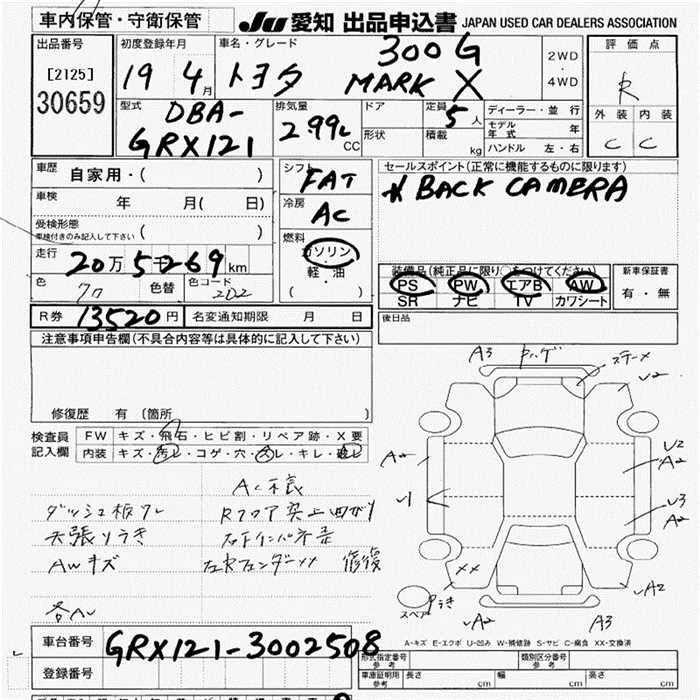 車内保管・守衛保管
JU 愛知 出品申込書 JAPAN USED CAR DEALERS ASSOCIATION
出品番号 初度登録年月 車名・グレード 300G 2WD・4WD 評価点
[2125] 19 4月 トヨタ MARK X R
30659
型式 DBA- 排気量 ドア 定員 5人 ディーラー・並行 外装 内装
GRX121 2.99L CC 形状 積載 kg モデル年式 年 C C
ハンドル 左・右
車歴 自家用・( ) シフト FAT セールスポイント(正常に機能するものに限ります)
車検 年 月( 日) 冷房 AC * BACK CAMERA
受検形態 ( )
車検付きのみ記入して下さい
燃料 ガソリン
軽・油
( )
走行 20万5千269km
色 クロ 色替 色コード 202
装備品(純正品に限り○をつけてください) 新車保証書
PS PW エアB AW 有・無
SR ナビ TV カワシート
R券 13520円 名変通知期限 月 日 後日品
注意事項申告欄(不具合内容等は具体的に記入して下さい)
修復歴 有 〔箇所 〕
検査員 FW キズ・飛石・ヒビ割・リペア跡・X要
記入欄 内装 キズ・汚レ・コゲ・穴・スレ・キレ・破レ
A3
ステーメ
U2
A2
U2
A2
U1
U3
A2
XX
スペア
A2
A2
A3
AC不良
ダッシュ板ワレ Rフロア突上曲がり
天張りうき
AWキズ 修復
各AU
A-キズ E-エクボ U-凹み W-補修跡 S-サビ C-腐食 XX-交換済
車台番号 GRX121-3002508
登録番号
型式指定番号 参考 類別区分番号 参考
車庫証明用 参考 長さ cm 幅 cm 高さ cm